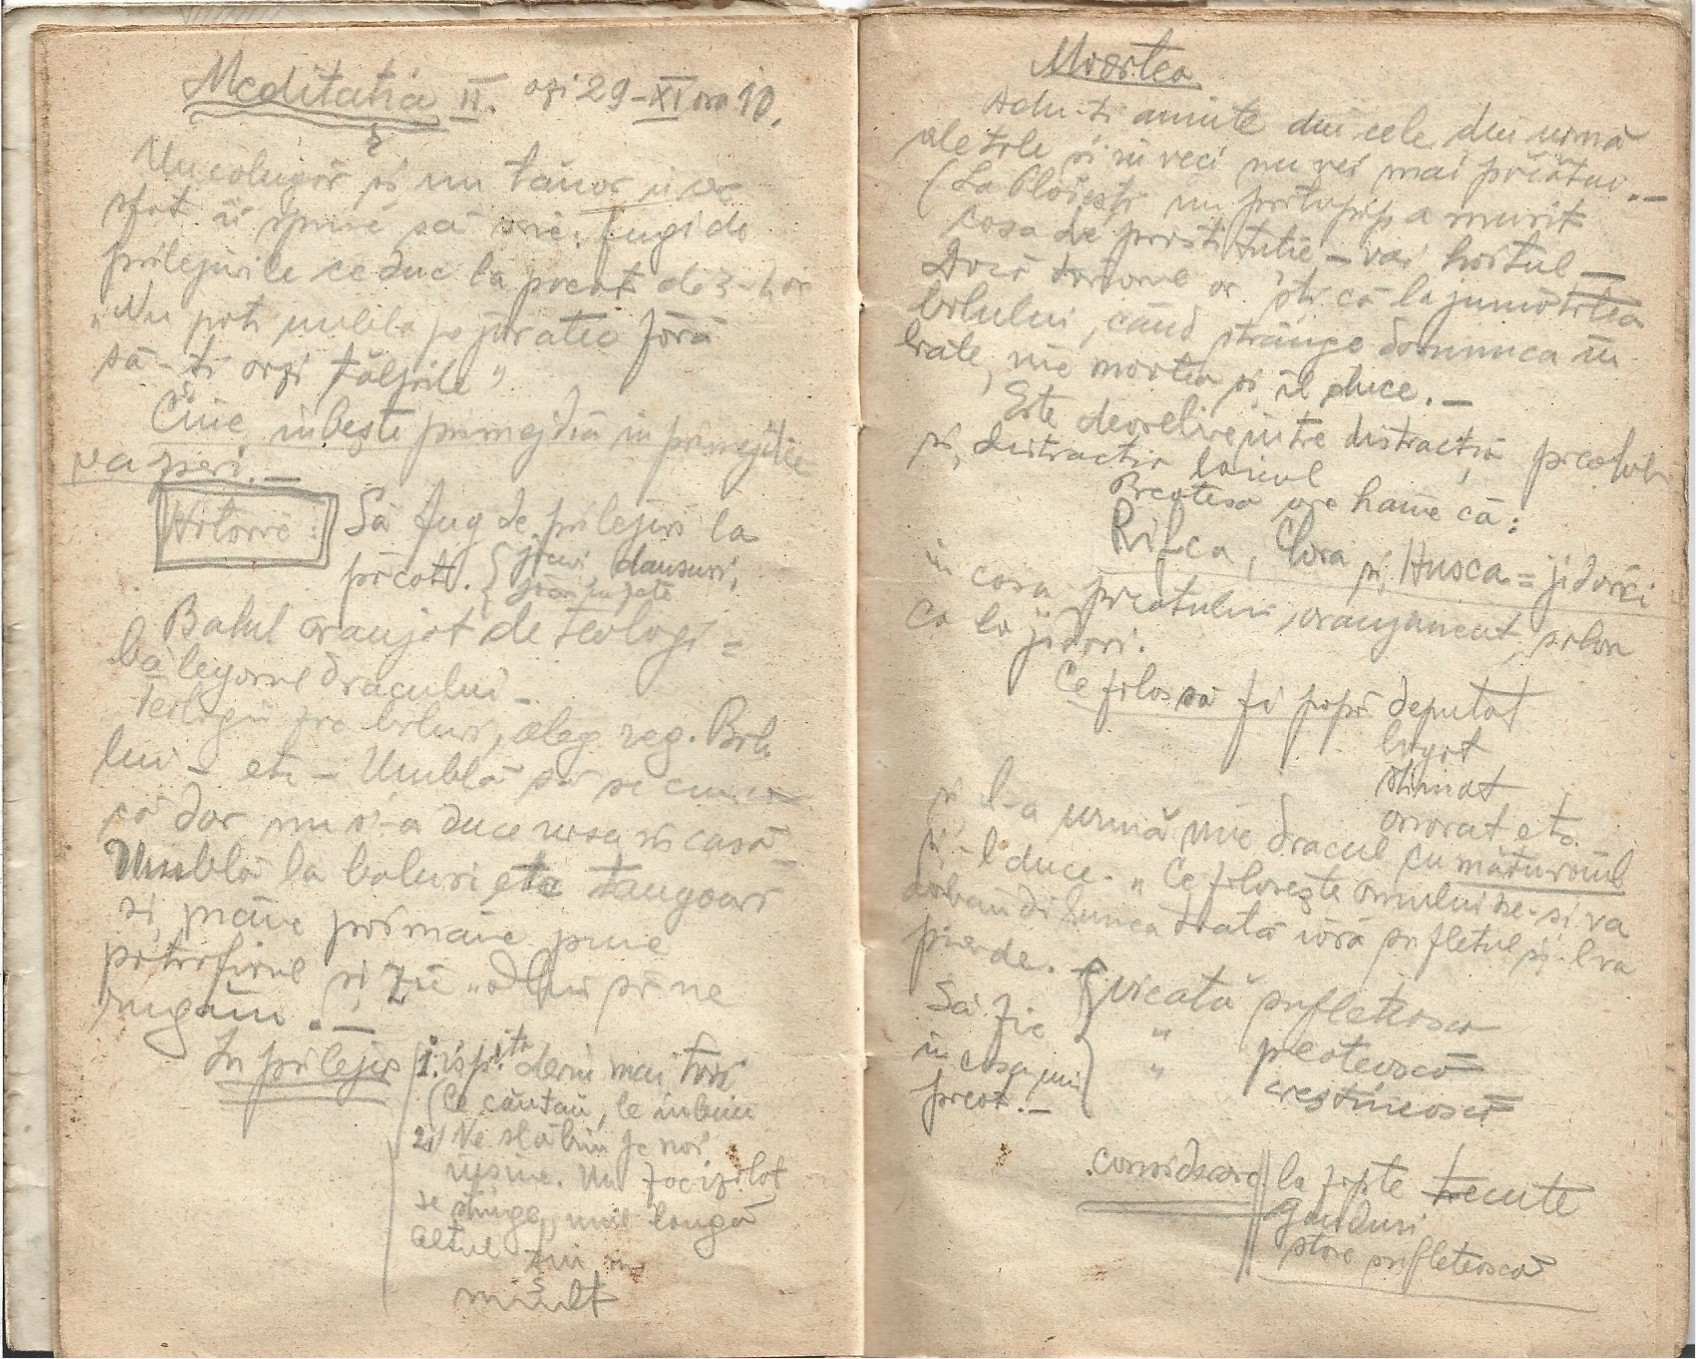 Meditatia II. azi 29-XI ora 10.
Un călugăr și un tânăr îi cer
sfat îi spune să
prilejurile ce duc la pocat de
„Nu poți umbla pe jăratec fără
să-ți arzi tălpile"
Cine iubește primejdia în primejdie
va peri. —
Hotărire: Să fug de prilejuri la
păcate. { jocuri, dansuri,
Balul aranjat de teologi =
bălegarul dracului -
Teologii fac baluri, aleg reg. Balu
lui - etc - Umblă să se
că dar nu s-a duce acasă
Umblă la baluri etc tangouri
și mâine poimâine pune
patrafirul și zice „Dlui să ne
rugăm. —
În prilejuri 1. ispita devin mai tari
(Ce căutam, le iubim
2) Ne slăbim pe noi
înșine. Un foc izolat
se stinge, unul lângă
altul țin m
mult
Moartea
Adu-ți aminte din cele din urmă
ale tale și în veci nu vei mai păcătui. —
(La Ploiești un protopop a murit
casa de prostituție - vai hoitul —
Dacă bolului, când strânge domnuca în
brate, vine moartea și îl duce. —
Este deosebire între distracția preotului
și, distractia laicul
Preoteasa are haine ca:
Rifca, Clora și Husca = jidovci
în casa preotului, aranjament, salon
ca la jidovi.
Ce folos să fi popă deputat
bogat
stimat
onorat etc.
și l-a urmă vine dracul cu măturoiul
și-l duce. „Ce folosește omului de-și va
dobândi lumea toată iară sufletul și-l va
pierde.
Să fie în casa unui preot. — { vieată sufletească
" preotească
" creștinească
considerare la fapte trecute
gânduri
stare sufletească